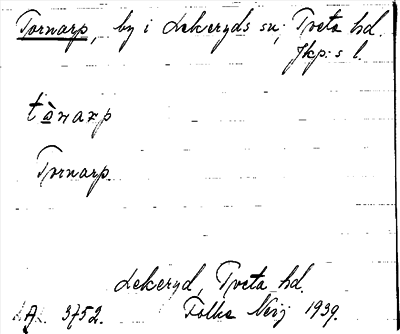 Tornarp, by i Lekeryds sn, Tveta hd.
Jkp:s l.
tònarp
Tornarp.
Lekeryd, Tveta hd.
A. 3752. Folke Neij 1939.